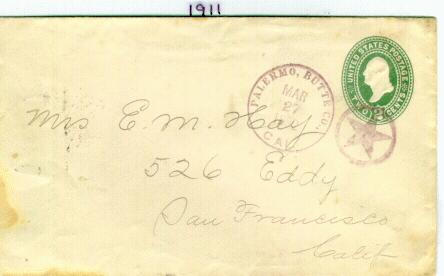 1911
UNITED STATES POSTAGE
TWO 2 CENTS
PALERMO, BUTTE CO.
MAR
27
CAL
Mrs E. M. Hay.
526 Eddy
San Francisco
Calif